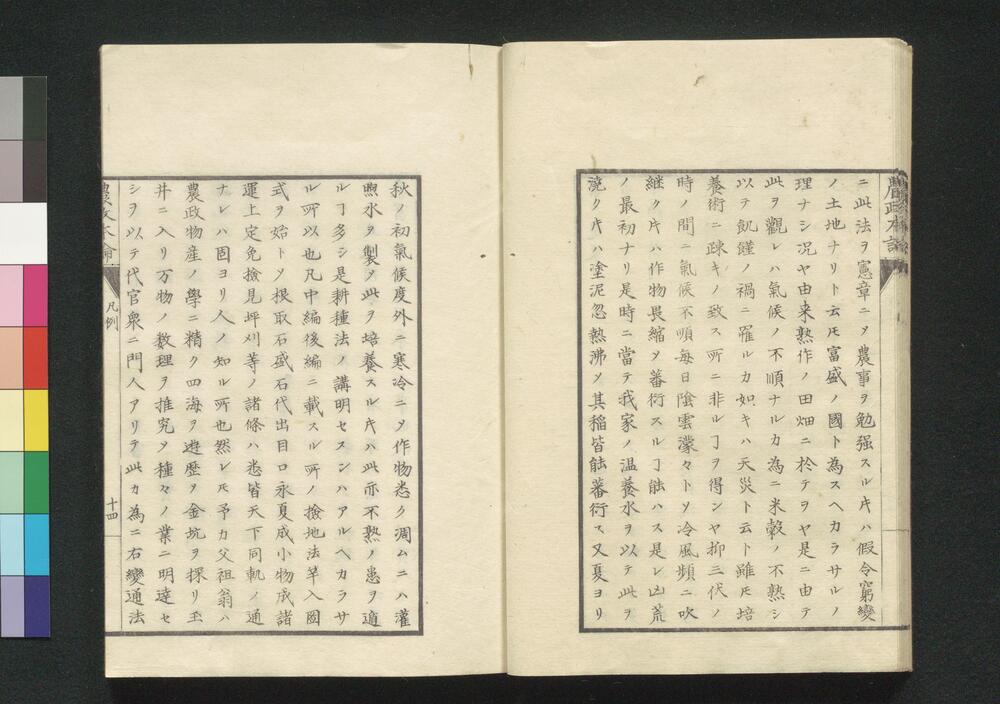 農政本論
ニ此法ヲ憲章ニ〆農事ヲ勉强スル𪜈ハ假令窮變
ノ土地ナリト云𪜈富盛ノ國ト為スヘカラサルノ
理ナシ况ヤ由来熟作ノ田畑ニ於テヲヤ是ニ由テ
此ヲ觀レハ氣候ノ不順ナルカ為ニ米穀ノ不熟シ
以テ飢饉ノ禍ニ罹ルカ如キハ天災ト云ト雖𪜈培
養術ニ疎キノ致ス所ニ非ル𪜀ヲ得ンヤ抑三伏ノ
時ノ間ニ氣候不順每日陰雲濛々ト〆冷風頻ニ吹
継ク片ハ作物畏縮〆蕃衍スル𪜀能ハス是レ凶荒
ノ最初ナリ是時ニ當テ我家ノ温養水ヲ以テ此ヲ
澆ク片ハ塗泥忽熱沸〆其稲皆能蕃衍ス又夏ヨリ
秋ノ初氣候度外ニ寒冷ニ〆作物悉ク凋ムニハ灌
煦水ヲ製〆此ヲ培養スル片ハ此亦不熟ノ患ヲ遁
ル𪜀多シ是耕種法ノ講明セスンハアルヘカラサ
ル所以也凡中編後編ニ載スル所ノ撿地法竿入圖
式ヲ始ト〆根取石盛石代出目口永夏成小物成諸
運上定免撿見坪刈等ノ諸條ハ悉皆天下同軌ノ通
ナレハ固ヨリ人ノ知ル所也然レ𪜈予カ父祖翁ハ
農政物産ノ學ニ精ク四海ヲ遊歴〆金坑ヲ探リ玉
井ニ入リ万物ノ数理ヲ推究〆種々ノ業ニ明達セ
シヲ以テ代官衆ニ門人アリテ此カ為ニ右變通法
農政本論
凡例
十四